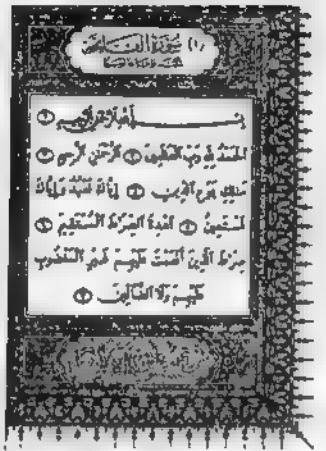 (١) سُورَةُ الفَاتِحَةِ
بِسْمِ اللَّهِ الرَّحْمَٰنِ الرَّحِيمِ ①
الْحَمْدُ لِلَّهِ رَبِّ الْعَالَمِينَ ② الرَّحْمَٰنِ الرَّحِيمِ ③
مَالِكِ يَوْمِ الدِّينِ ④ إِيَّاكَ نَعْبُدُ وَإِيَّاكَ
نَسْتَعِينُ ⑤ اهْدِنَا الصِّرَاطَ الْمُسْتَقِيمَ ⑥
صِرَاطَ الَّذِينَ أَنْعَمْتَ عَلَيْهِمْ غَيْرِ الْمَغْضُوبِ
عَلَيْهِمْ وَلَا الضَّالِّينَ ⑦